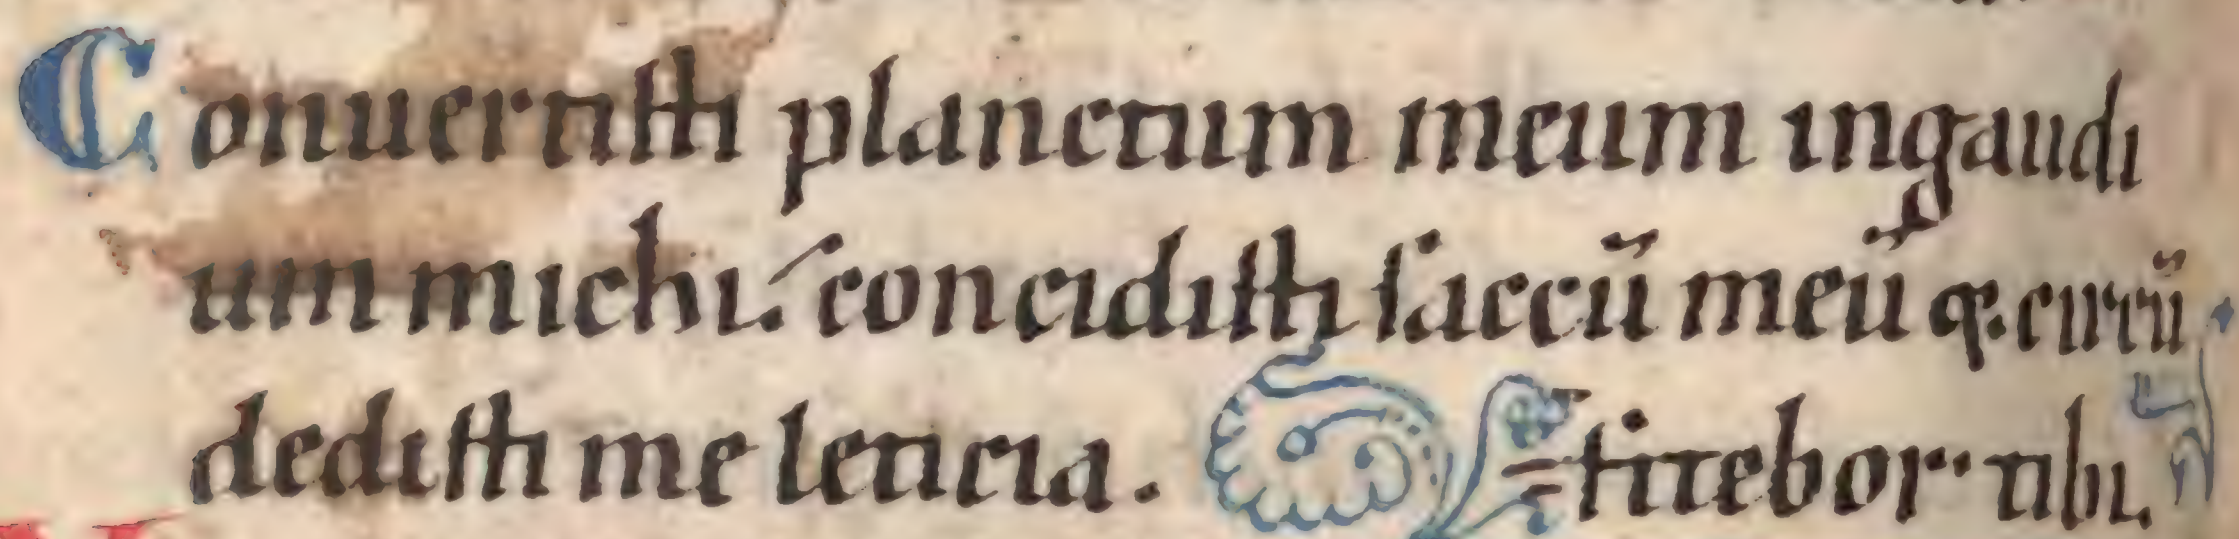 Conuertisti planctum meum ingaudi
um michi. concidisti saccū meū & circū
dedisti me leticia.
fitebor tibi.